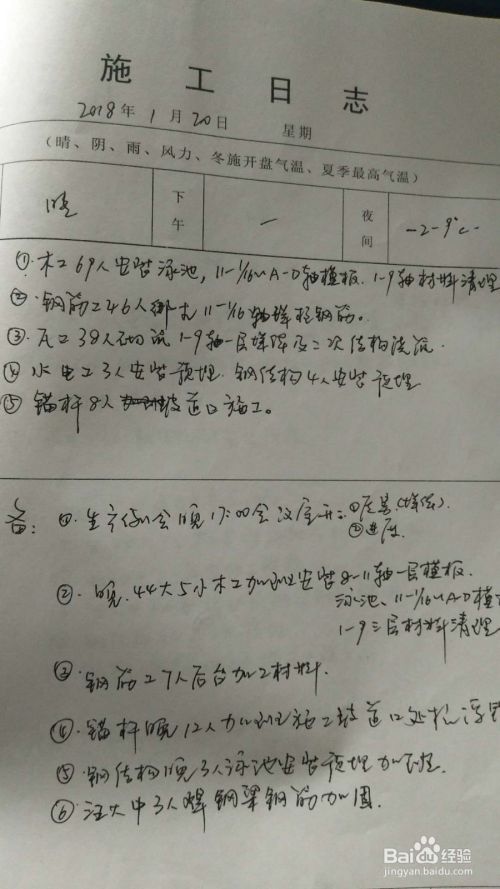 施工日志
2018年1月20日 星期
(晴、阴、雨、风力、冬施开盘气温、夏季最高气温)
晴 下午 — 夜间 -2-9℃
①木工69人安装泳池, 11-1/16 A-D轴模板. 1-9轴材料清理
②钢筋工46人绑扎11-1/16轴墙柱钢筋。
③瓦工38人砌 1-9轴一层 及二次结构
④水电工3人安装预埋. 钢结构4人安装预埋
⑤锚杆8人 坡道口施工。
备: ①生产例会晚17:00会议室开: ①质量
②进度.
②晚.44大5小木工加班安装8-11轴一层模板.
泳池、11-1/16 A-D模
1-9三层材料清理
③钢筋工7人后台加工材料.
④锚杆晚12人加班施工坡道口处
⑤钢结构晚3人泳池安装预埋加班.
⑥汪大中3人焊钢梁钢筋加固.
Baidu经验
jingyan.baidu.com